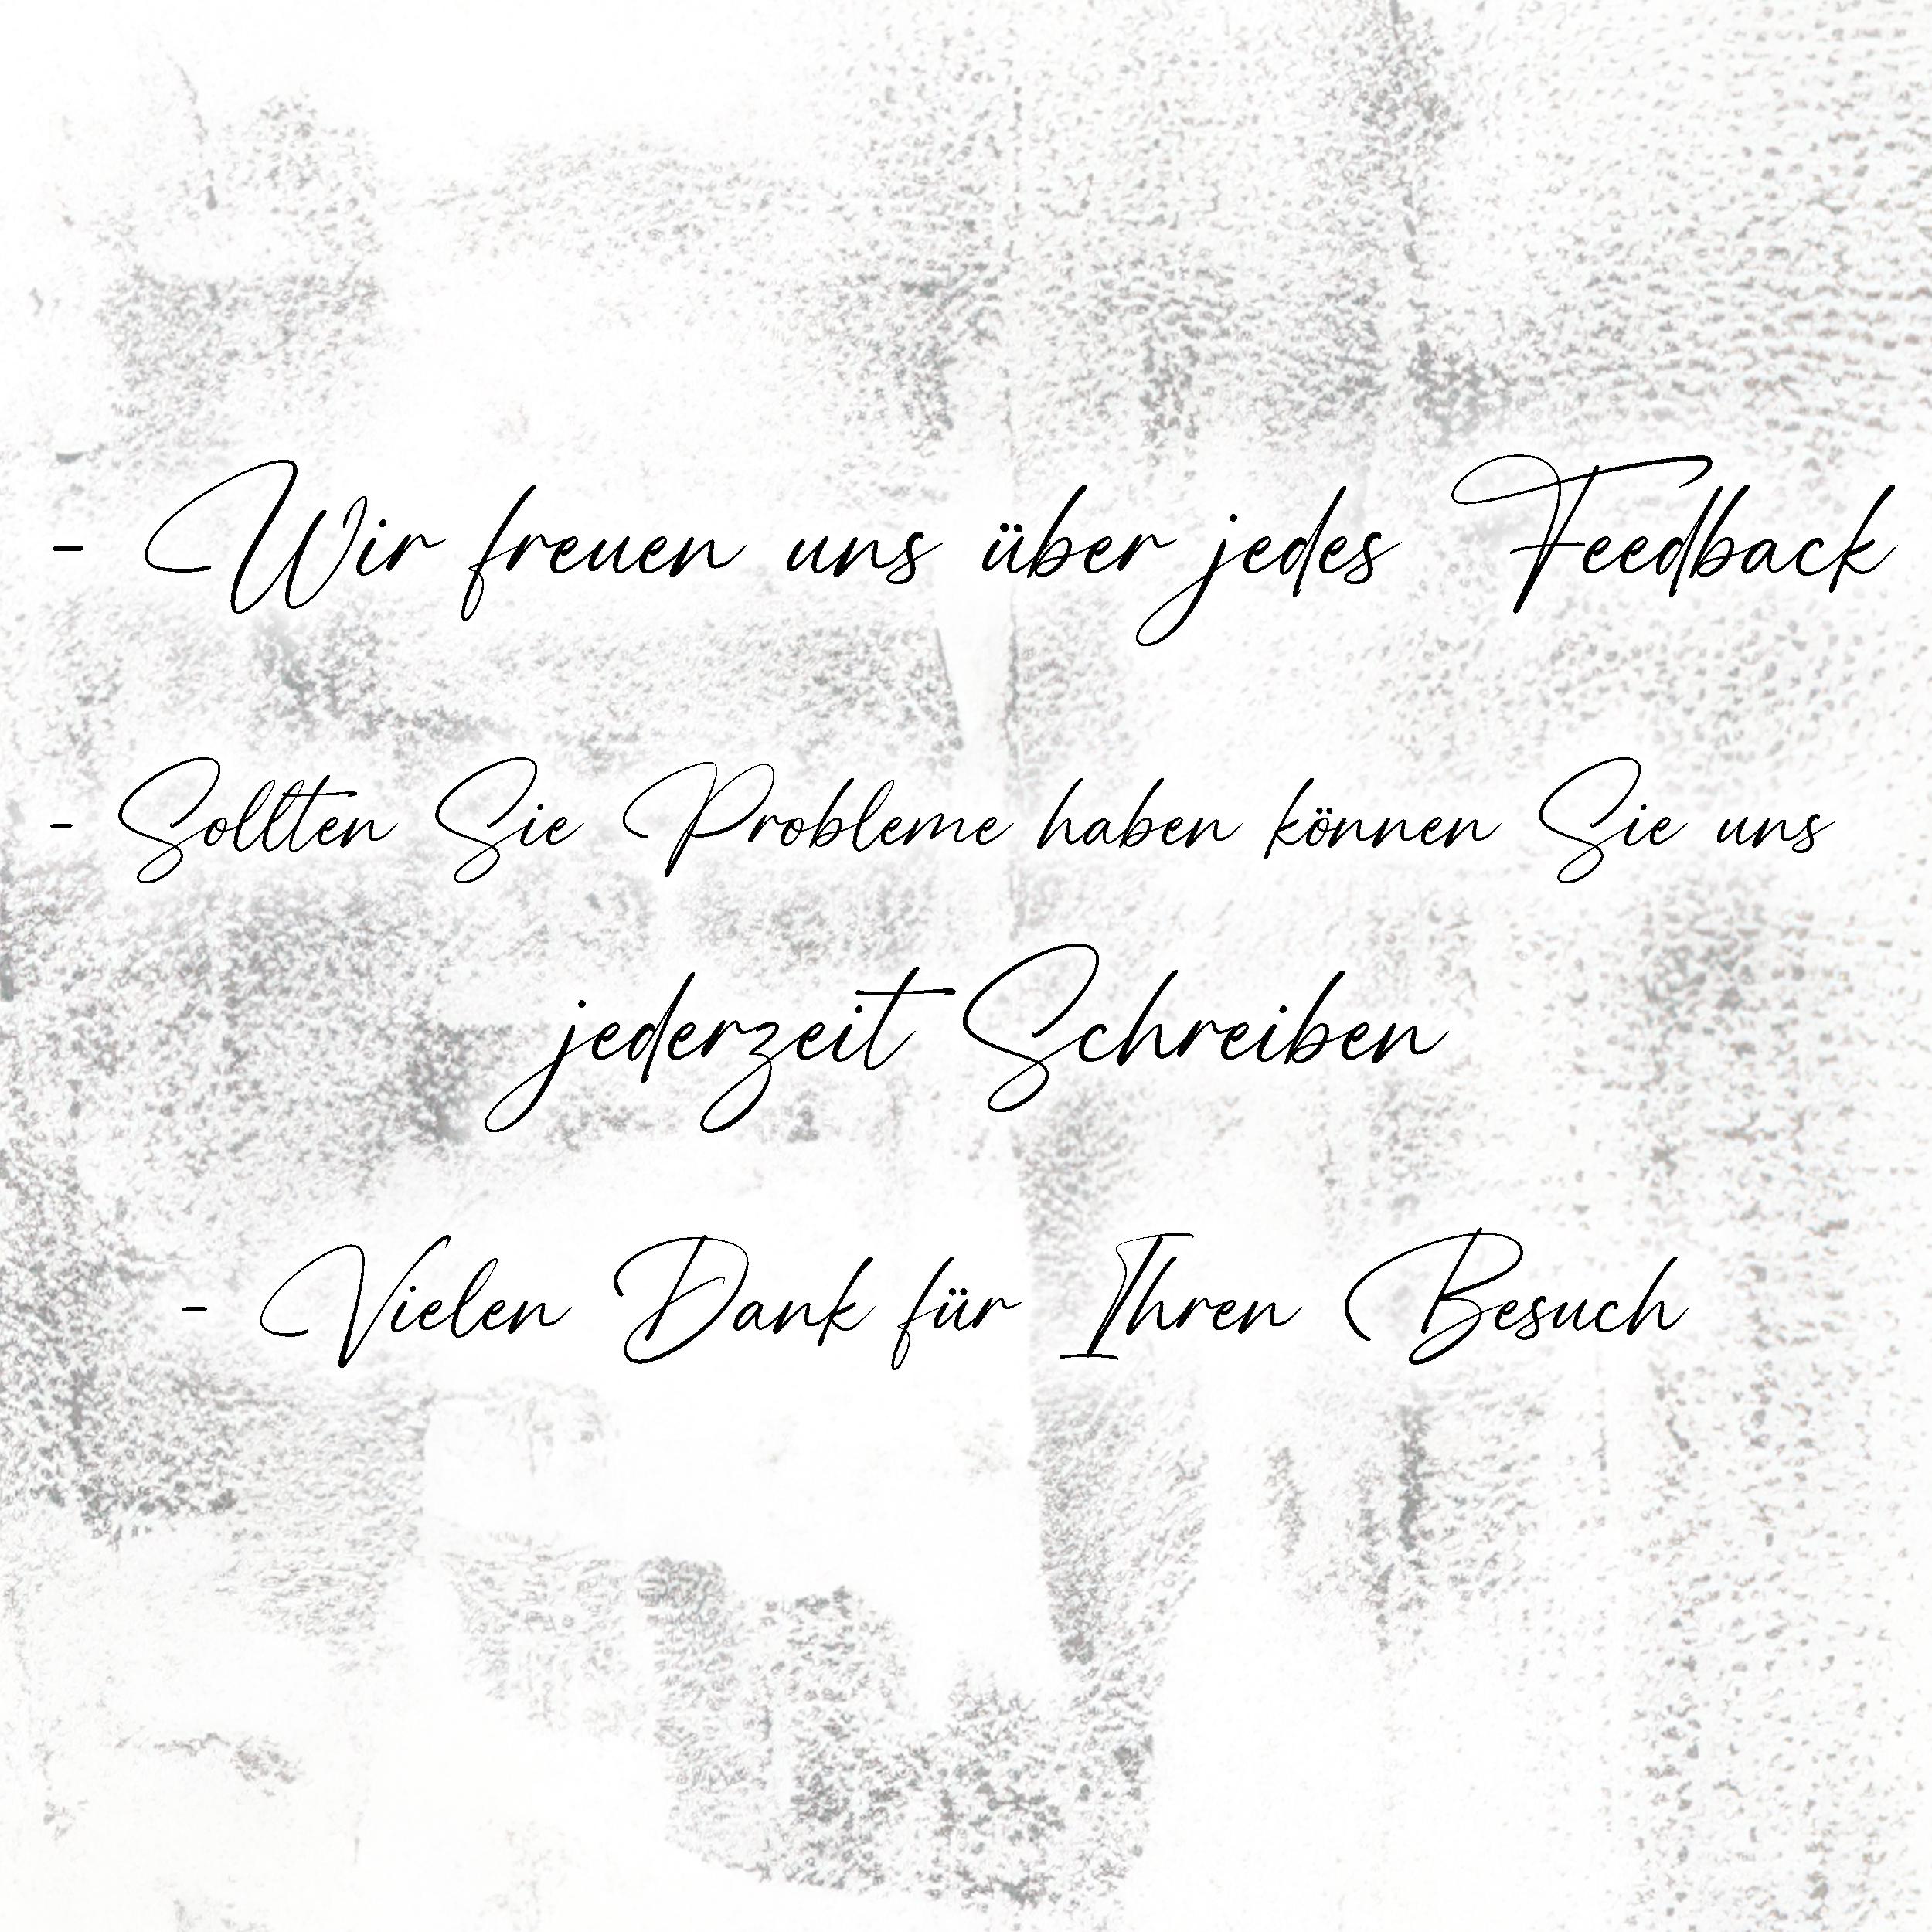 - Wir freuen uns über jedes Feedback
- Sollten Sie Probleme haben können Sie uns
jederzeit Schreiben
- Vielen Dank für Ihren Besuch